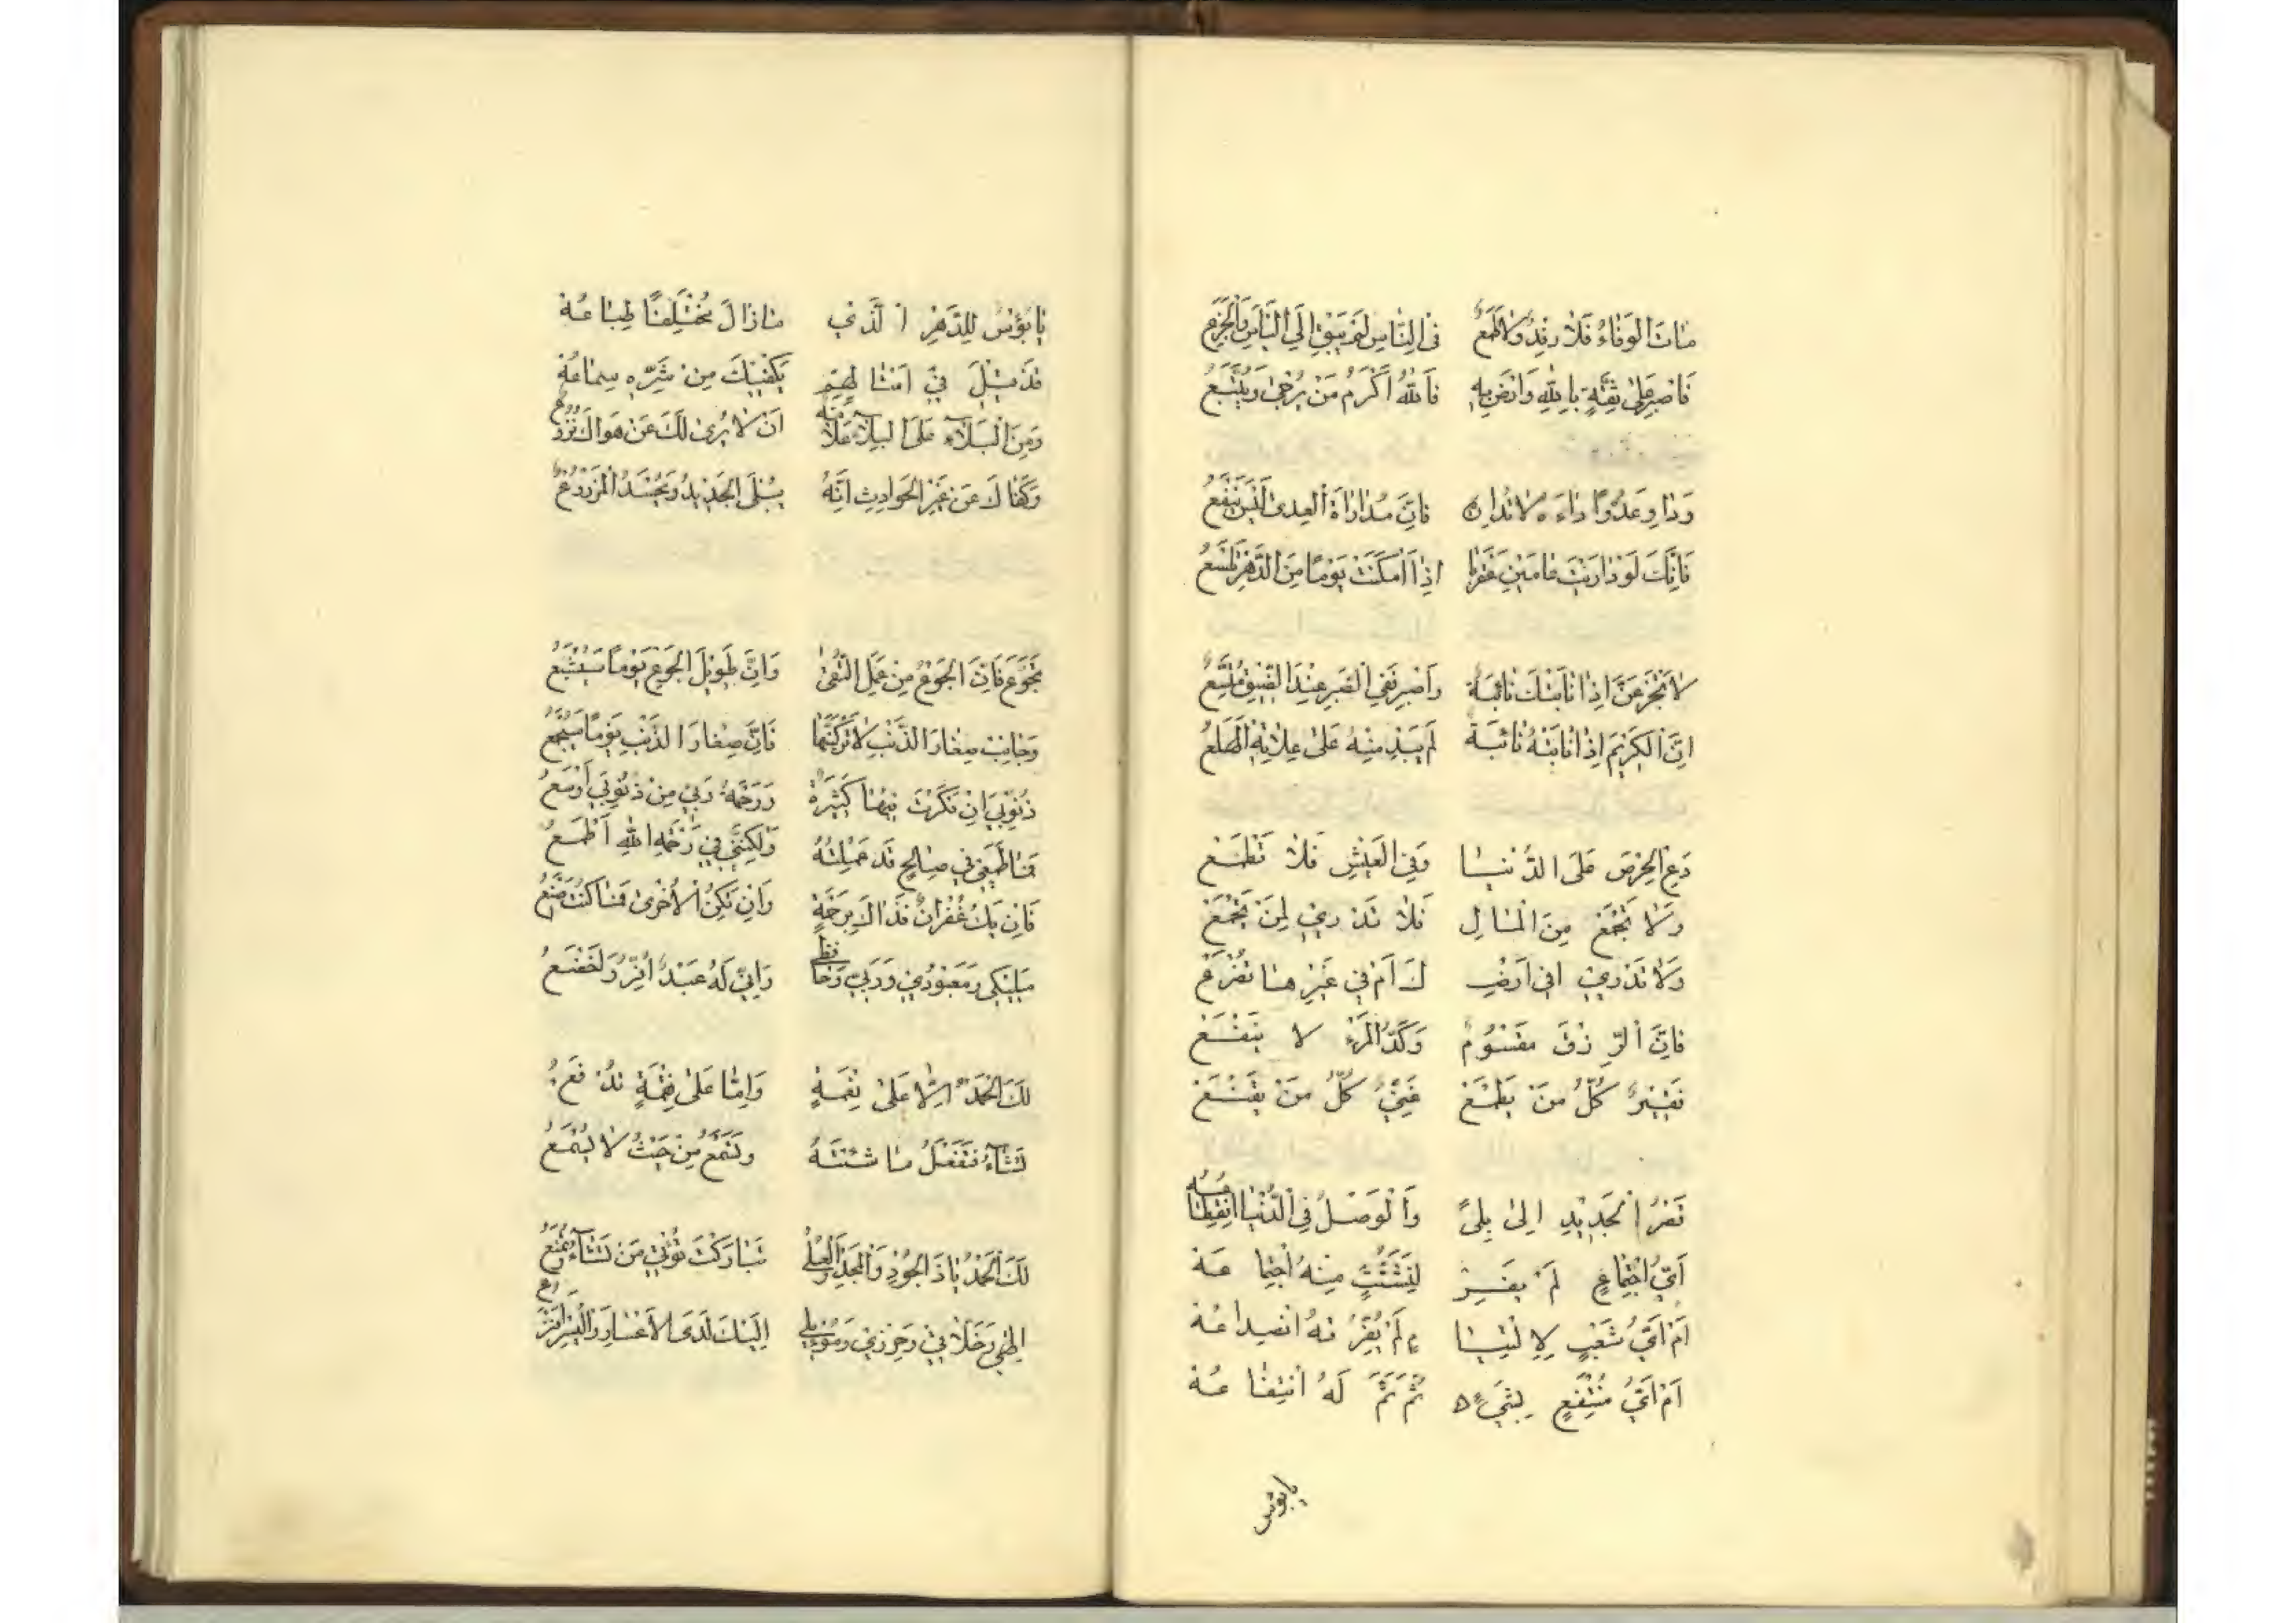 مَاتَ الوَفَاءُ فَلَا رِفْدٌ وَلَا طَمَعٌ فِى النَّاسِ لَمْ يَبْقَ اِلَّا اليَاسُ وَالجَزَعُ
فَاصْبِرْ عَلىٰ ثِقَةٍ بِاللهِ وَارْضَ بِهِ فَاللهُ اَكْرَمُ مَنْ يُرْجىٰ وَيُتَّبَعُ
وَدَاوِ عَدُوًّا دَاءَهُ لَا تُدَارِهِ فَاِنَّ مُدَارَاةَ العِدىٰ لَيْسَ يَنْفَعُ
فَاِنَّكَ لَوْ دَارَيْتَ عَامَيْنِ عَقْرَبًا اِذَا اَمْكَنَتْ يَوْمًا مِنَ الدَّهْرِ تَلْسَعُ
لَا تَجْزَعَنَّ اِذَا نَابَتْكَ نَائِبَةٌ وَاصْبِرْ فَفِي الصَّبْرِ عِنْدَ الضِّيقِ مُتَّسَعُ
اِنَّ الكَرِيمَ اِذَا نَابَتْهُ نَائِبَةٌ لَمْ يَبْدُ مِنْهُ عَلىٰ عِلَّاتِهِ الهَلَعُ
دَعِ الحِرْصَ عَلَى الدُّنْيَا وَفِي العَيْشِ فَلَا تَطْمَعْ
وَلَا تَجْمَعْ مِنَ المَالِ فَلَا تَدْرِي لِمَنْ تَجْمَعْ
وَلَا تَدْرِي اَفِي اَرْضِ كَ اَمْ فِي غَيْرِهَا تُصْرَعْ
فَاِنَّ الرِّزْقَ مَقْسُومٌ وَكَدُّ المَرْءِ لَا يَنْفَعْ
فَقِيرٌ كُلُّ مَنْ يَطْمَعْ غَنِيٌّ كُلُّ مَنْ يَقْنَعْ
قَصْرُ الجَدِيدِ اِلىٰ بِلىً وَالوَصْلُ فِى الدُّنْيَا انْقِطَاعُهْ
اَيُّ اجْتِمَاعٍ لَمْ يَصِرْ لِتَشَتُّتٍ مِنْهُ اجْتِمَاعُهْ
اَمْ اَيُّ شَعْبٍ لِالْتِيَا مٍ لَمْ يُفَرِّقْهُ انْصِدَاعُهْ
اَمْ اَيُّ مُنْتَفِعٍ بِشَيْءٍ ثُمَّ تَمَّ لَهُ انْتِفَاعُهْ
يا بؤس
يَا بُؤْسَ لِلدَّهْرِ الَّذِي مَا زَالَ مُخْتَلِفًا طِبَاعُهْ
قَدْ قِيلَ فِي اَمْثَالِهِمْ يَكْفِيكَ مِنْ شَرِّهِ سِمَاعُهْ
وَمِنَ البَلَاءِ عَلَى البَلَاءِ عَلَامَةٌ اَنْ لَا يُرىٰ لَكَ عَنْ هَوَاكَ نُزُوعُ
وَكَفَاكَ عَنْ غِيَرِ الحَوَادِثِ اَنَّهُ يُبْلَى الجَدِيدُ وَيُحْصَدُ المَزْرُوعُ
تَجَوَّعْ فَاِنَّ الجُوعَ مِنْ عَمَلِ التُّقىٰ وَاِنَّ طَوِيلَ الجُوعِ يَوْمًا سَيُشْبَعُ
وَجَانِبْ صِغَارَ الذَّنْبِ لَا تَرْكَبَنَّهَا فَاِنَّ صِغَارَ الذَّنْبِ يَوْمًا سَيُجْمَعُ
ذُنُوبِيَ اِنْ فَكَّرْتُ فِيهَا كَثِيرَةٌ وَرَحْمَةُ رَبِّي مِنْ ذُنُوبِي اَوْسَعُ
فَمَا طَمَعِي فِي صَالِحٍ قَدْ عَمِلْتُهُ وَلٰكِنَّنِي فِي رَحْمَةِ اللهِ اَطْمَعُ
فَاِنْ يَكُ غُفْرَانٌ فَذَاكَ بِرَحْمَةٍ وَاِنْ تَكُنِ الأُخْرىٰ فَمَا كُنْتُ اَصْنَعُ
مَلِيكِي وَمَعْبُودِي وَرَبِّي وَحَافِظِي وَاِنِّي لَهُ عَبْدٌ اُقِرُّ وَاَخْضَعُ
لَكَ الحَمْدُ اِمَّا عَلىٰ نِعْمَةٍ وَاِمَّا عَلىٰ نِقْمَةٍ تُدْفَعُ
تَشَاءُ فَتَفْعَلُ مَا شِئْتَهُ وَتَسْمَعُ مِنْ حَيْثُ لَا يُسْمَعُ
لَكَ الحَمْدُ يَا ذَا الجُودِ وَالمَجْدِ وَالعُلىٰ تَبَارَكْتَ تُؤْتِي مَنْ تَشَاءُ وَتَمْنَعُ
اِلٰهِي وَخَلَّاقِي وَحِرْزِي وَمَوْئِلِي اِلَيْكَ لَدَى الاَعْسَارِ وَاليُسْرِ اَفْزَعُ